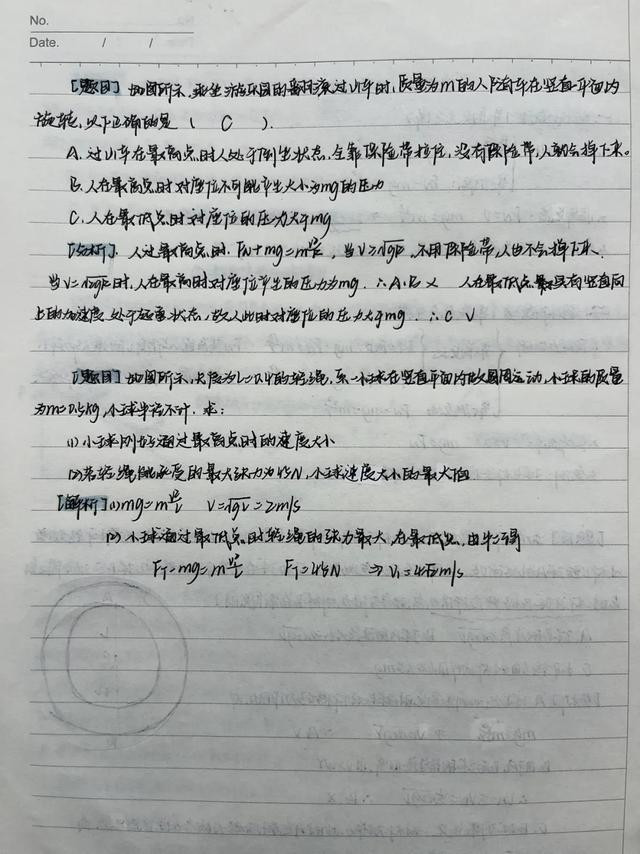 No.
Date. / /
[题目] 如图所示,乘坐游乐园的翻滚过山车时,质量为m的人随车在竖直平面内
旋转,以下正确的是( C ).
A.过山车在最高点时人处于倒坐状态,全靠保险带拉住,没有保险带,人就会掉下来.
B.人在最高点时对座位不可能产生大小为mg的压力
C.人在最低点时对座位的压力大于mg
[分析].人过最高点时.FN+mg=mv²/R,当V≥√gR,不用保险带,人也不会掉下来.
当V=√2gR时,人在最高时对座位产生的压力为mg.∴A.B.× 人在最低点最具有竖直向
上的加速度,处于超重状态,故人此时对座位的压力大于mg.∴C√
[题目]如图所示,长度为L=0.4的轻绳,系一小球在竖直平面内做圆周运动,小球的质量
为m=0.5kg,小球半径不计.求:
(1)小球刚好通过最高点时的速度大小
(2)若轻绳能承受的最大张力为45N,小球速度大小的最大值
[解析](1)mg=mv²/L V=√gL=2m/s
(2)小球通过最低点时轻绳的张力最大,在最低点,由牛二得
FT-mg=mv²/L FT=45N ⇒V₁=4√2m/s